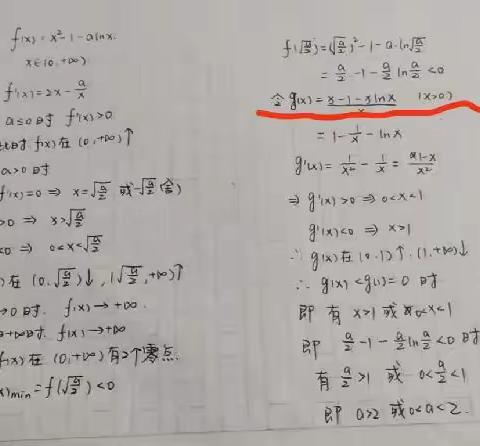 f(x)=x²-1-alnx.
x∈(0,+∞)
f'(x)=2x-a/x
a≤0时 f'(x)>0
此时 f(x)在(0,+∞)↑
a>0时
f'(x)=0 ⇒ x=√(a/2) 或-√(a/2)(舍)
>0 ⇒ x>√(a/2)
<0 ⇒ 0<x<√(a/2)
)在(0,√(a/2))↓,(√(a/2),+∞)↑
→0时. f(x)→+∞.
→+∞时. f(x)→+∞
f(x)在(0,+∞)有2个零点.
x)min=f(√(a/2))<0
f(√(a/2))=(√(a/2))²-1-a·ln√(a/2)
=a/2-1-a/2 ln a/2<0
令 g(x)=(x-1-xlnx)/x (x>0)
=1-1/x-lnx
g'(x)=1/x²-1/x=(1-x)/x²
⇒g'(x)>0⇒0<x<1
g'(x)<0⇒x>1
∴g(x)在(0,1)↑,(1,+∞)↓
∴g(x)<g(1)=0时
即有x>1或0<x<1
即 a/2-1-a/2 ln a/2<0时
有 a/2>1 或 0<a/2<1
即 a>2 或0<a<2.